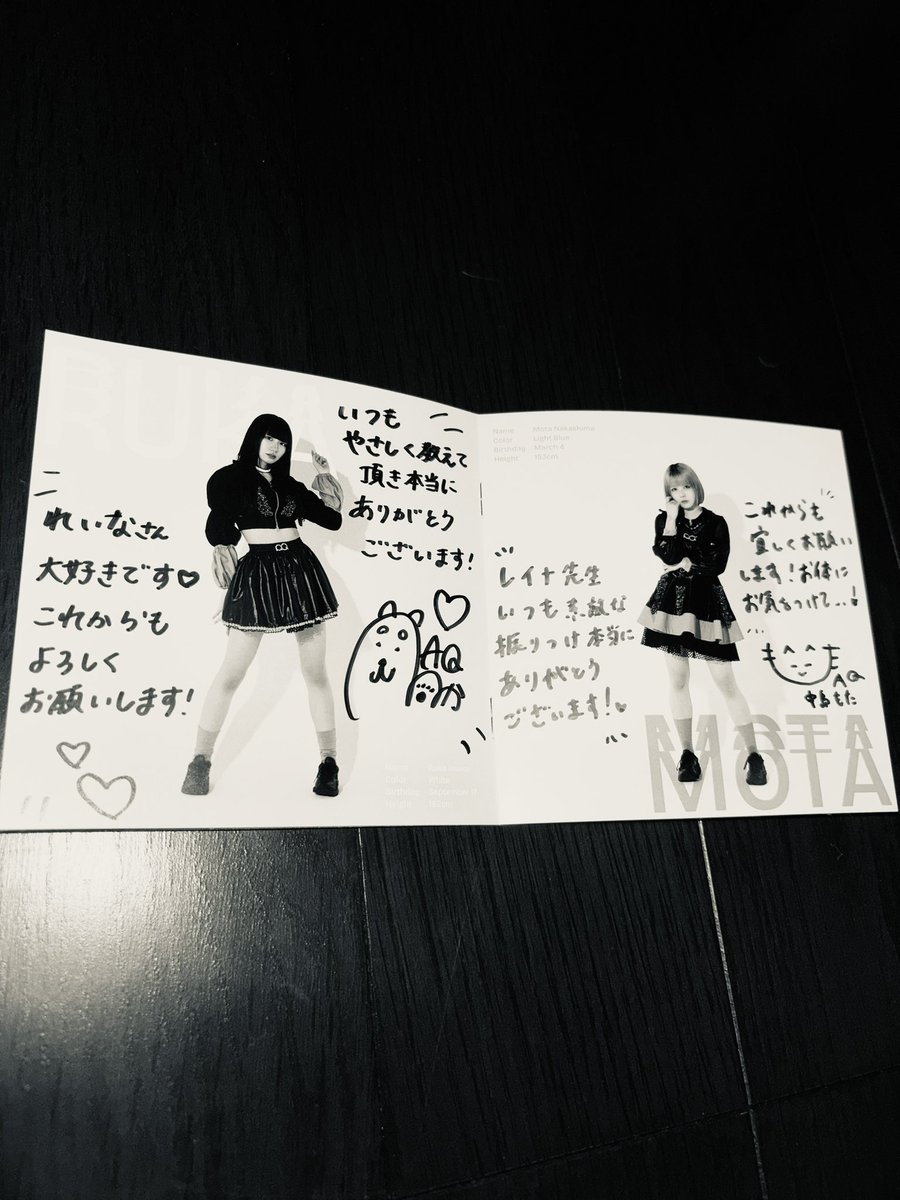 れいなさん
大好きです♡
これからも
よろしく
お願いします!
いつも
やさしく教えて
頂き本当に
ありがとう
ございます!
AQ
Color White
Birthday September 17
Height
Name Mota Nakashima
Color Light Blue
Birthday March 6
Height 153cm
レイナ先生
いつも素敵な
振りつけ本当に
ありがとう
ございます!♡
これからも
宜しくお願い
します!お体に
お気をつけて…!
AQ
中島もた
MOTA